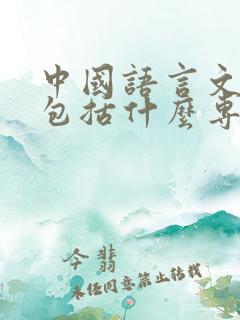 中國語言文
包括什麼專
今翡
未经同意禁止转载